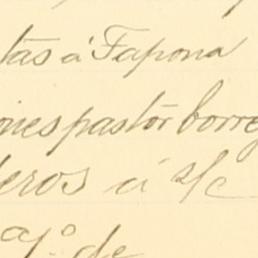 tas á Fapona
ones pastor borre
eros á s/c
aj.º de